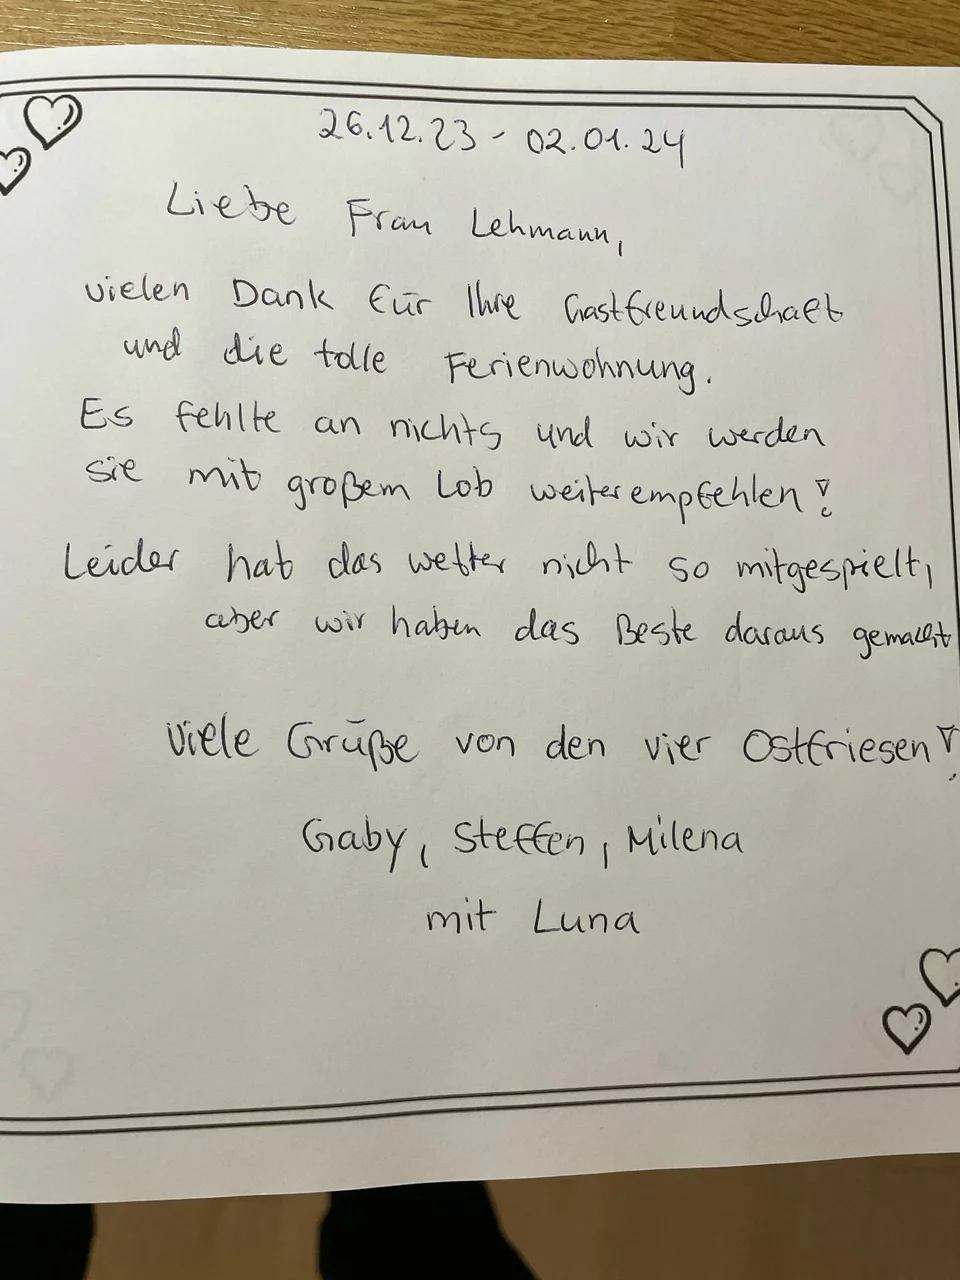 26.12.23 - 02.01.24
Liebe Frau Lehmann,
vielen Dank für Ihre Gastfreundschaft
und die tolle Ferienwohnung.
Es fehlte an nichts und wir werden
sie mit großem Lob weiterempfehlen!
Leider hat das wetter nicht so mitgespielt,
aber wir haben das Beste daraus gemacht
Viele Grüße von den vier Ostfriesen!
Gaby, Steffen, Milena
mit Luna